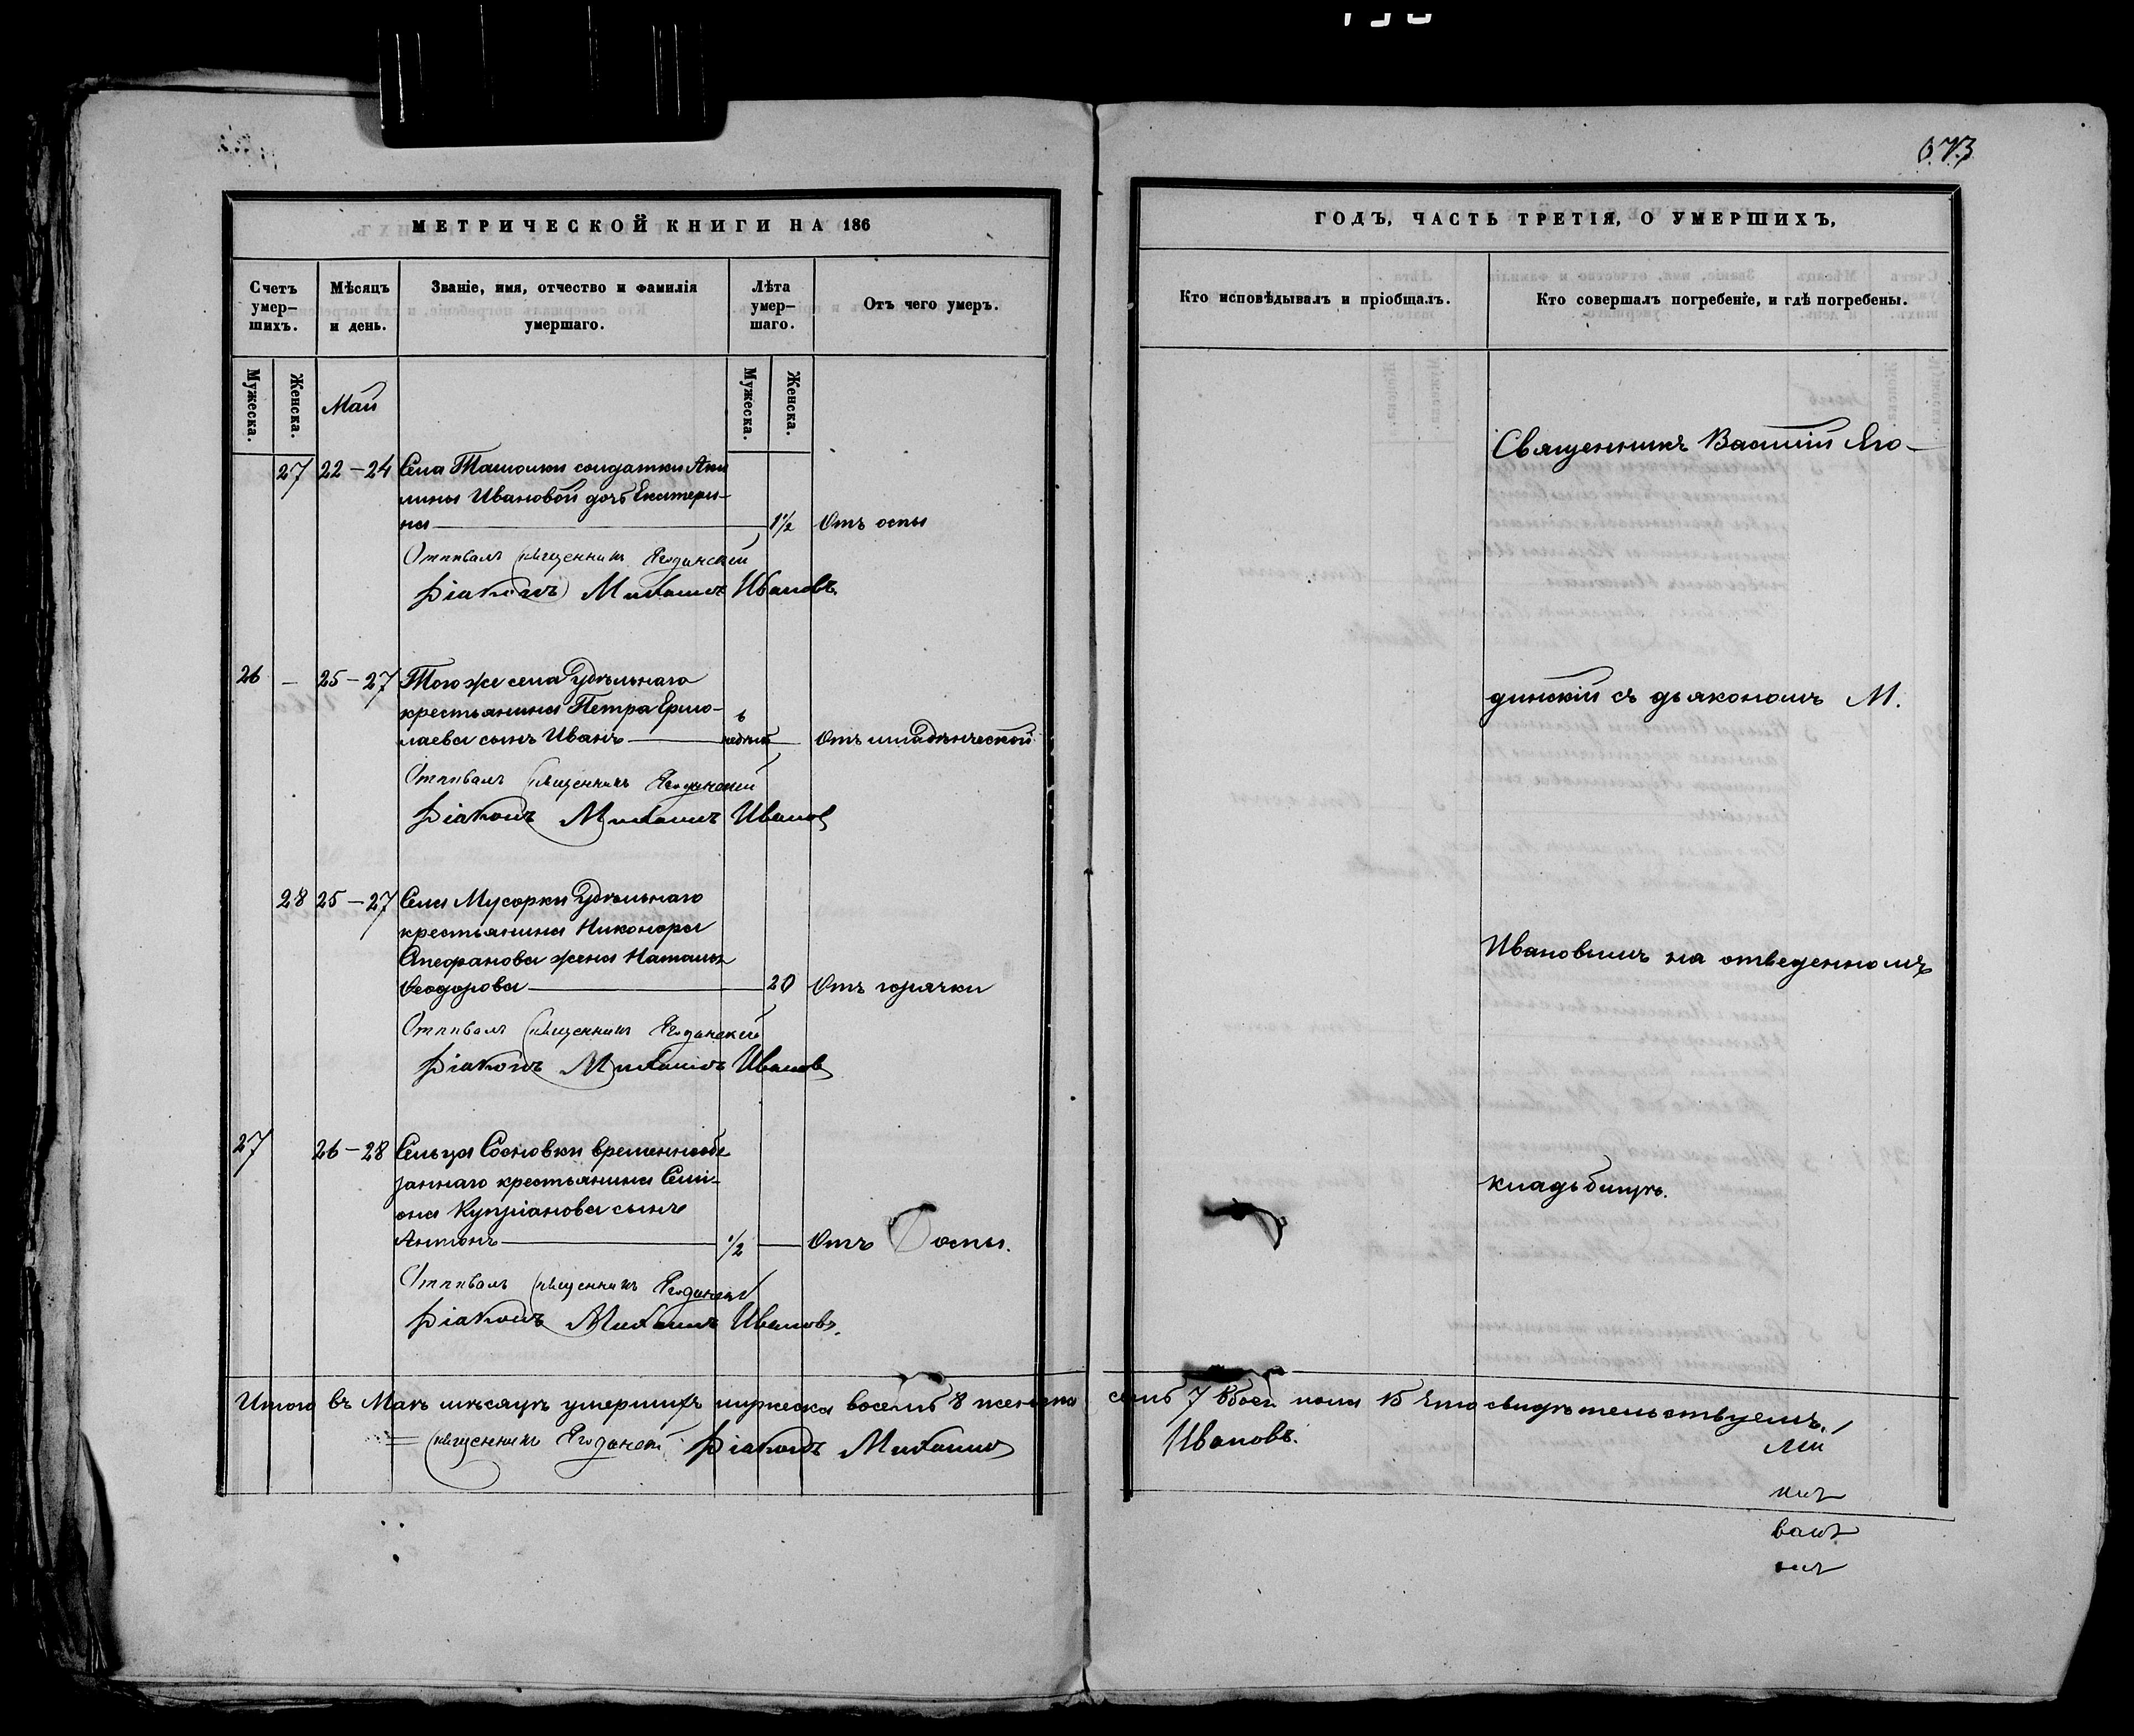 673
МЕТРИЧЕСКОЙ КНИГИ НА 186
Счетъ умерших. Мѣсяцъ и день. Званіе, имя, отчество и фамилія умершаго. Лѣта умершаго. Отъ чего умеръ.
Мужеска. Женска. Мужеска. Женска.
Май
27 22–24 Села Ташолки солдатки Аки
лины Ивановой дочь Екатери-
на 1½ Отъ оспы
Отпѣвалъ священникъ Ягодинскій
Діаконъ Михаилъ Ивановъ.
26 – 25–27 Того же села Удѣльнаго
крестьянина Петра Ермо-
лаева сынъ Иванъ 6 недѣль Отъ младѣнческой
Отпѣвалъ священникъ Ягодинскій
Діаконъ Михаилъ Ивановъ
28 25–27 Села Мусорки Удѣльнаго
крестьянина Никонора
Стефанова жена Наталья
Ѳеодорова 20 Отъ горячки
Отпѣвалъ священникъ Ягодинскій
Діаконъ Михаилъ Ивановъ
27 26–28 Сельца Сосновки временнообя
заннаго крестьянина Сими-
она Купріанова сынъ
Антонъ ½ Отъ оспы.
Отпѣвалъ священникъ Ягодинскій
Діаконъ Михаилъ Ивановъ.
ГОДЪ, ЧАСТЬ ТРЕТІЯ, О УМЕРШИХЪ,
Кто исповѣдывалъ и пріобщалъ. Кто совершалъ погребеніе, и гдѣ погребены.
Священникъ Василій Яго-
динскій съ дьякономъ М.
Ивановымъ на отведенномъ
кладьбищѣ.
Итого въ Маѣ мѣсяцѣ умершихъ мужеска восемь 8 женска семь 7 обоего пола 15 что свидѣтельствуемъ.
священникъ Ягодинскій Діаконъ Михаилъ Ивановъ.